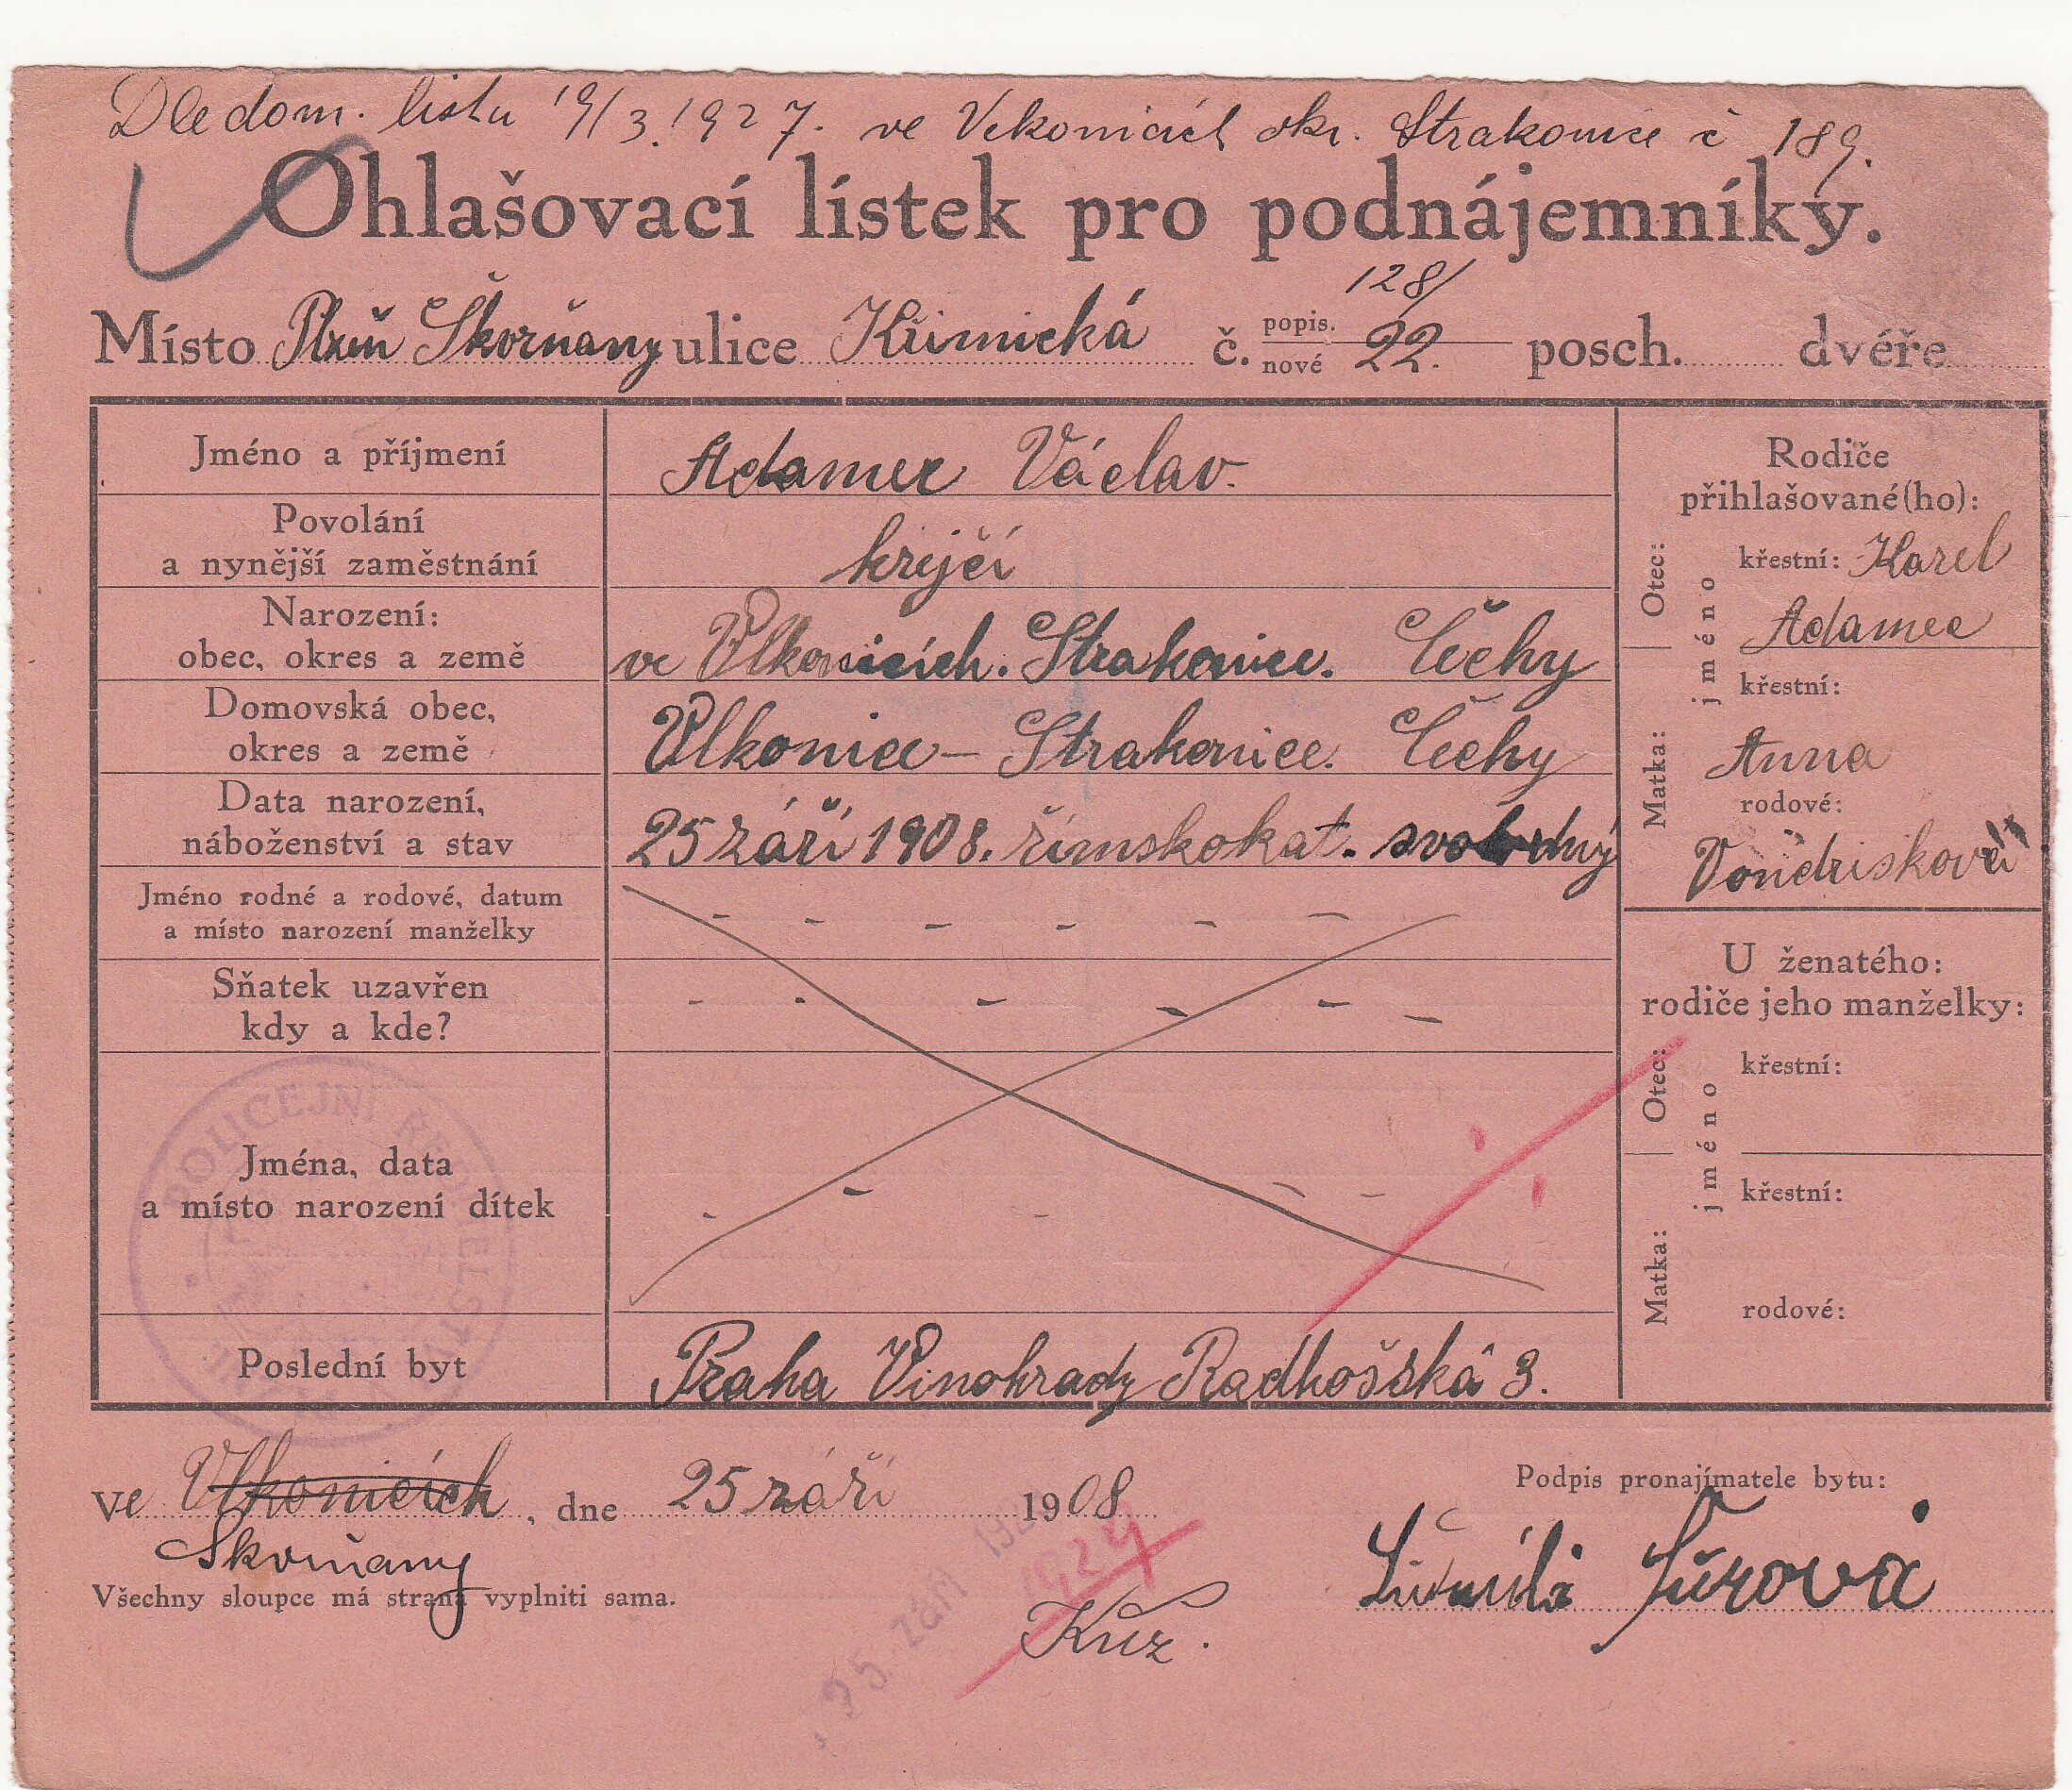 Dle dom. listu 19/3. 1927. ve Vlkonicích okr. Strakonice č 189.
Ohlašovací lístek pro podnájemníky.
128/
Místo Plzeň Škvrňany ulice Křimická č. popis. nové 22. posch. dvéře
Jméno a příjmení Adamec Václav.
Povolání
a nynější zaměstnání krejčí
Narození:
obec, okres a země ve Vlkonicích. Strakonice. Čechy
Domovská obec,
okres a země Vlkonice – Strakonice. Čechy
Data narození,
náboženství a stav 25 září 1908. římskokat. svobodný
Jméno rodné a rodové, datum
a místo narození manželky
Sňatek uzavřen
kdy a kde?
Jména, data
a místo narození dítek
Poslední byt Praha Vinohrady Radhošská 3.
Rodiče
přihlašované(ho):
Otec: jméno křestní: Karel
Adamec
Matka: křestní:
Anna
rodové:
Vondrisková
U ženatého:
rodiče jeho manželky:
Otec: jméno křestní:
Matka: křestní:
rodové:
POLICEJNÍ ŘEDITELSTVÍ
ve Vlkonicích, dne 25 září 1908
Škvrňany
Všechny sloupce má strana vyplniti sama.
25. ZÁŘÍ
Podpis pronajímatele bytu:
Ludmila